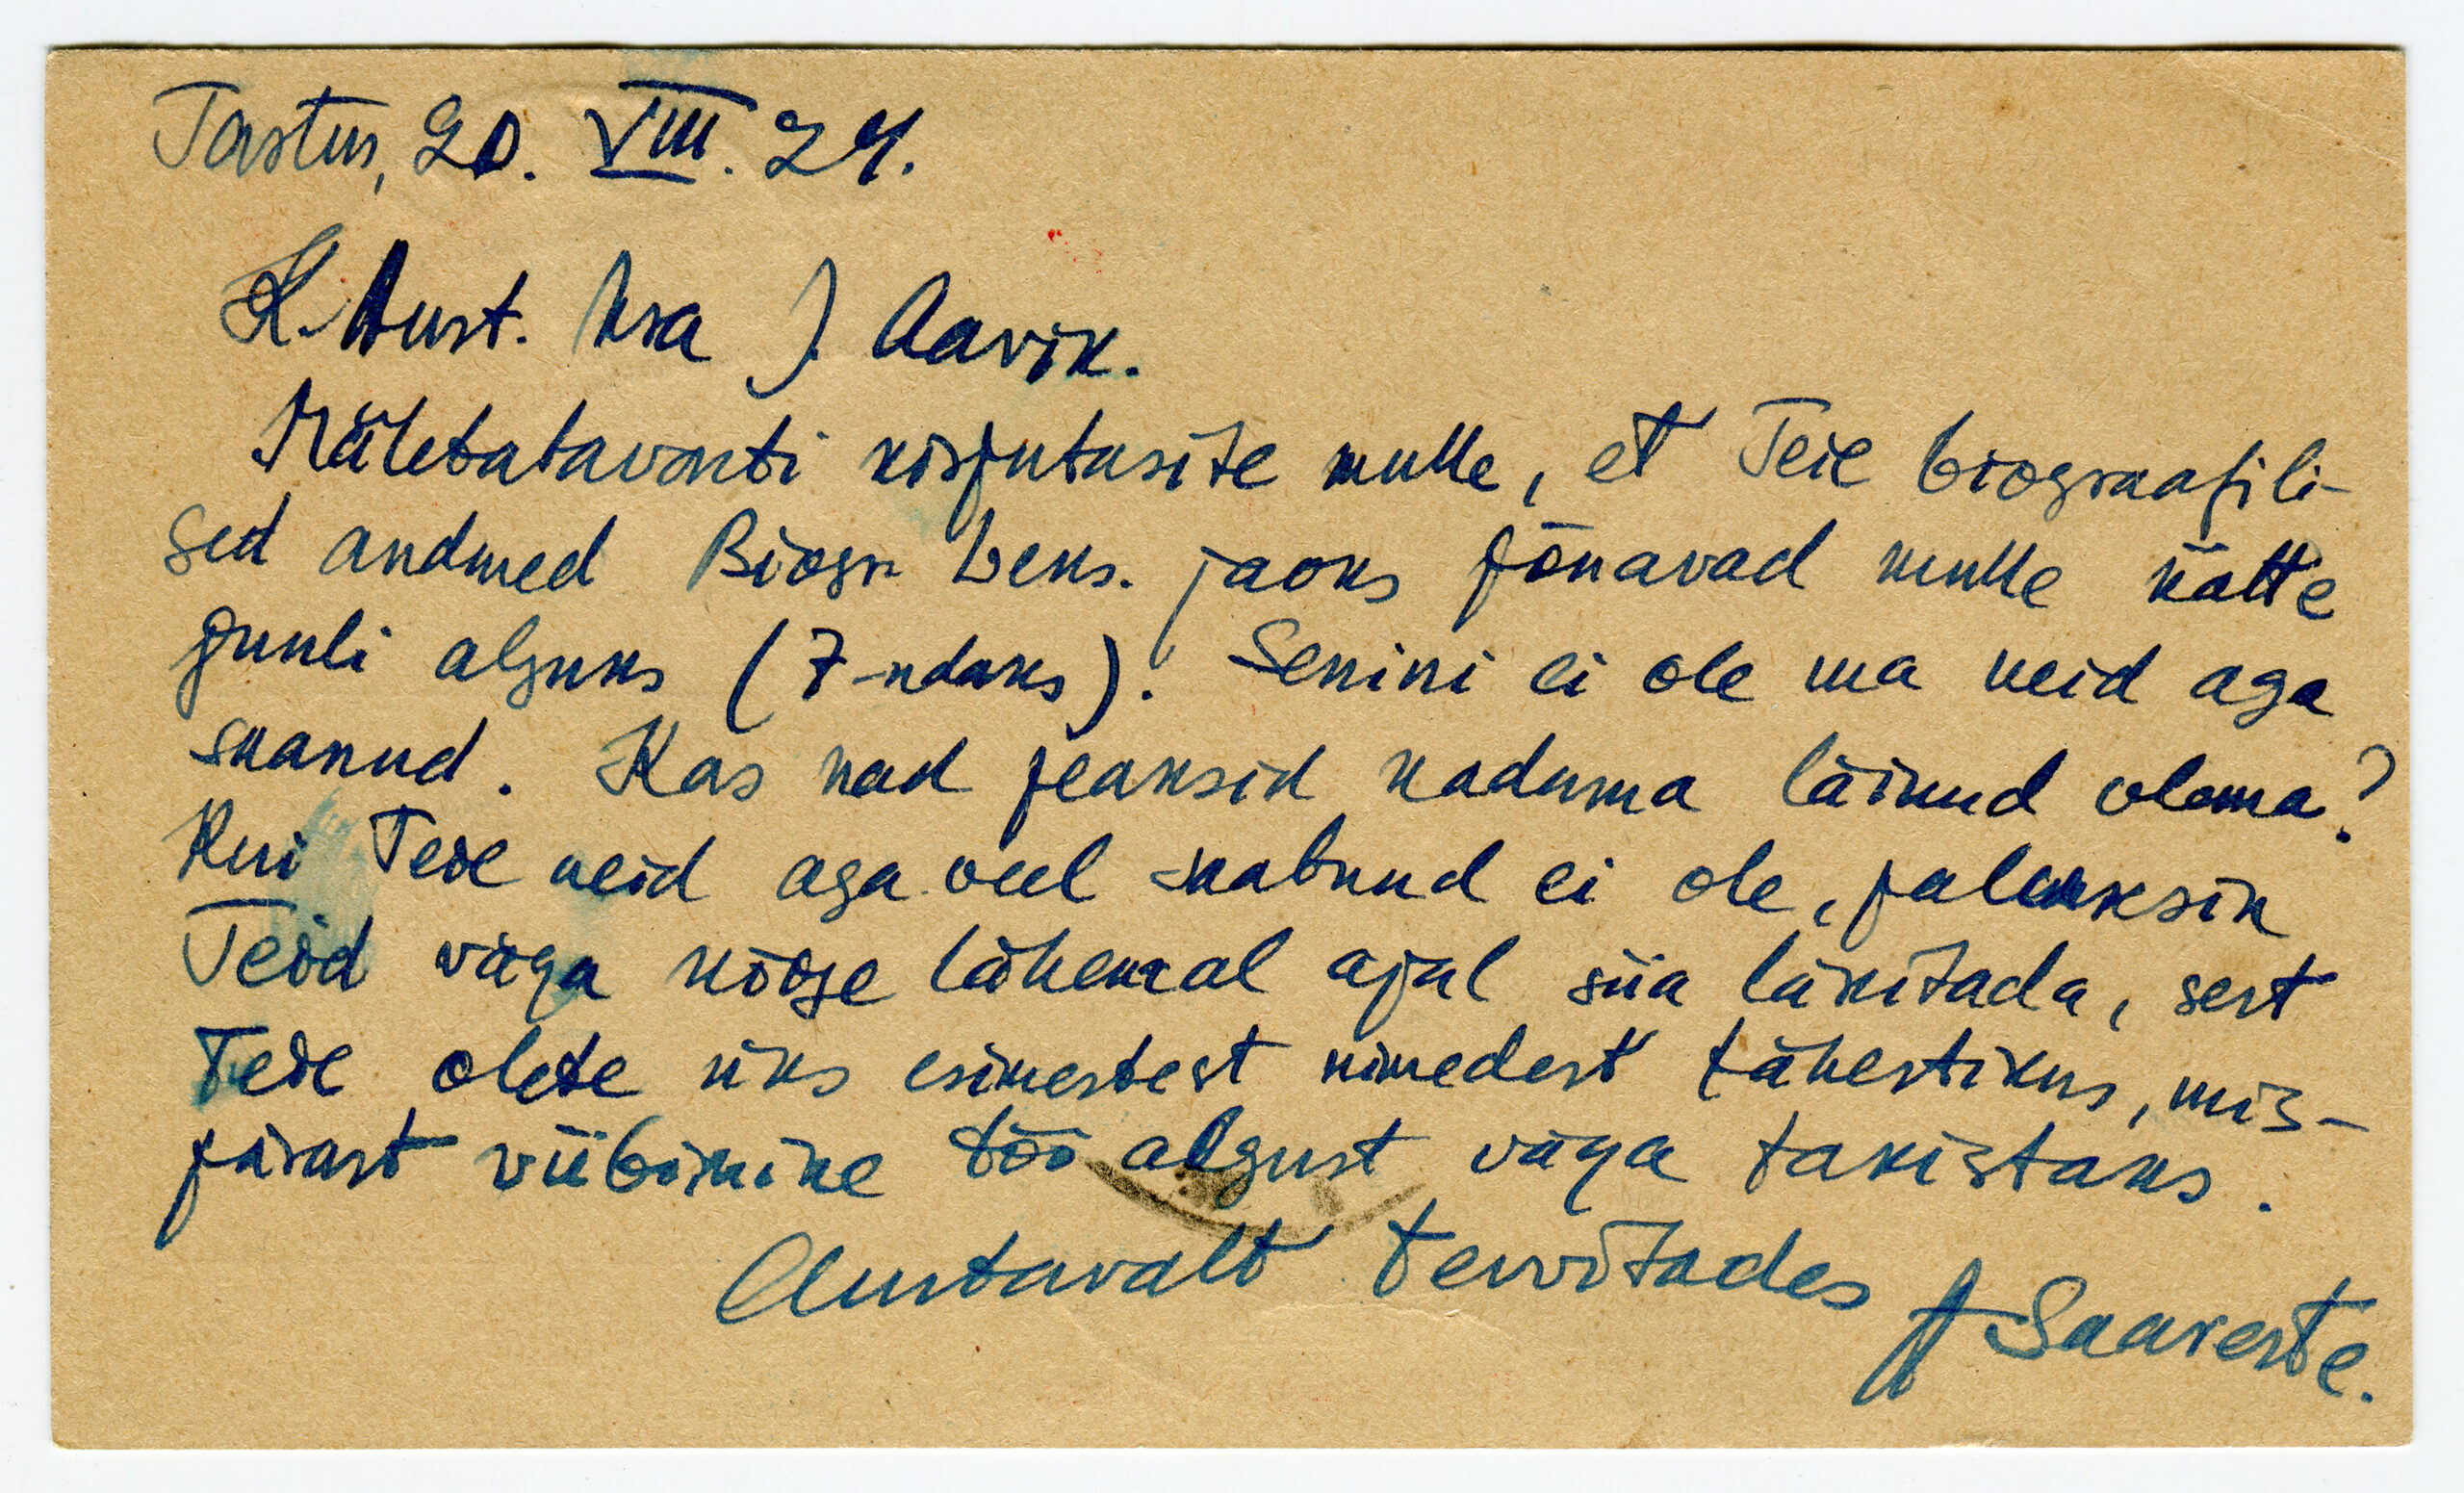 Tartus, 20. VIII. 24.
L. Aust. hra J. Aavik.
Mäletatavasti kirjutasite mulle, et Teie biograafili-
sed andmed Biogr. Leks. jaoks jõuavad mulle kätte
juuli alguks (7-ndaks). Senini ei ole ma neid aga
saanud. Kas nad peaksid kaduma läinud olema?
Kui Teie neid aga veel saatnud ei ole, paluksin
Teid väga kõige lähemal ajal siia läkitada, sest
Teie olete üks esimestest nimedest tähestikus, mis-
pärast viibimine töö algust väga takistaks.
Austavalt tervitades A Saareste.